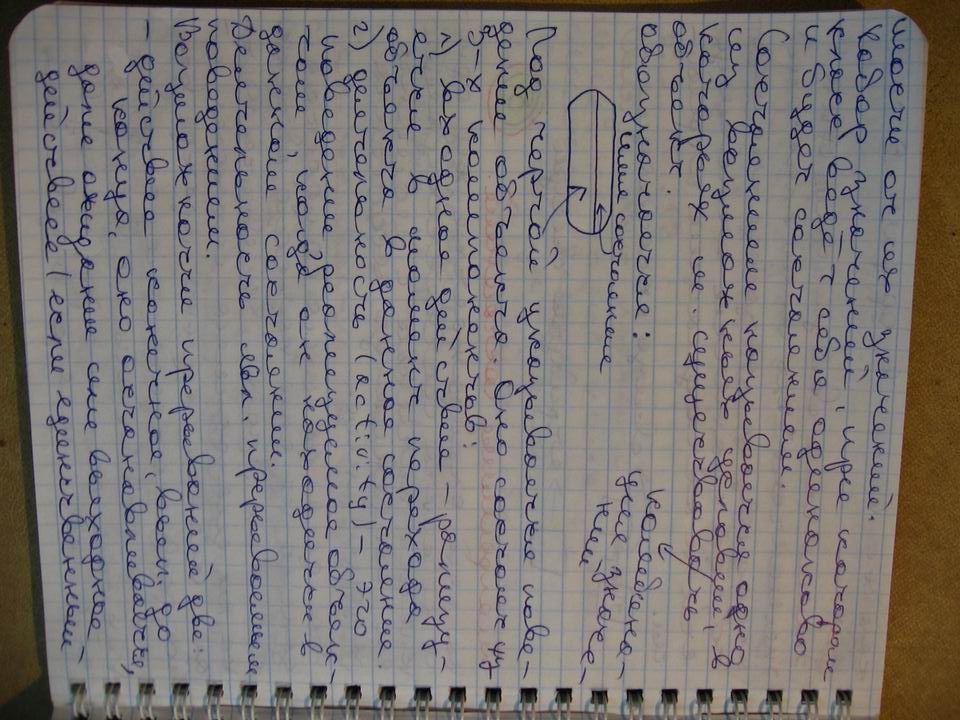 мости от их значений.
Набор значений, при котором
класс ведёт себя одинаково
и будет состоянием.
Состоянием называется одно
из возможных условий, в
которых м. существовать
объект.
обозначается:
имя состояния
Под чертой указывается пове-
дение объекта. Оно состоит из
3-х компонентов:
1) входное действие – реализу-
ется в момент перехода
объекта в данное состояние.
2) деятельность (activity) – это
поведение реализуемое объек-
том, когда он находится в
данном состоянии.
Деятельность явл. прерываемым
поведением.
Возможности прерываний две:
- действие конечное, введ. до
конца, оно останавливается,
далее ожидание или выходное
действие (если единственный-